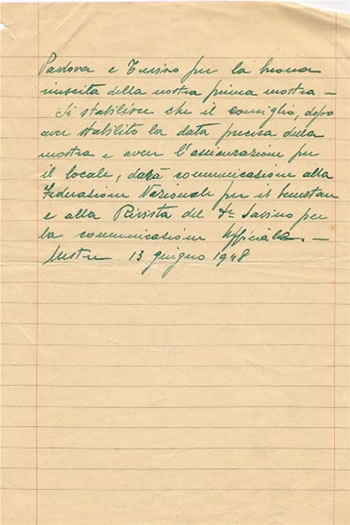 Padova e Treviso per la buona
riuscita della nostra prima mostra –
Si stabilisce che il consiglio, dopo
aver stabilito la data precisa della
mostra e aver l'assicurazione per
il locale, darà comunicazione alla
Federazione Nazionale per il
e alla Rivista del Dr Savino per
la comunicazione Ufficiale. –
Mestre 13 giugno 1948